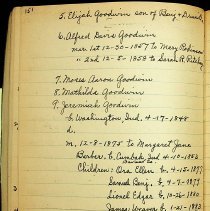 5. Elijah Goodwin son of Benj & Drusilla
6. Alfred Davis Goodwin
mar. 1st 12-30-1857 to Mary Robinson
" 2nd 12-5-1858 to Sarah R.
7. Moses Aaron Goodwin
8. Mathilda Goodwin
9. Jeremiah Goodwin
b. Washington, Ind. 4-17-1848
d.
m. 12-8-1875 to Margaret Jane
Barber b. Ind 4-10-1853
Children: Ora Ellen b. 4-15-1877
Samuel Benj. b. 4-7-1879
Lionel Edgar b. 10-26-1880
James Weaver b. 1-21-1883